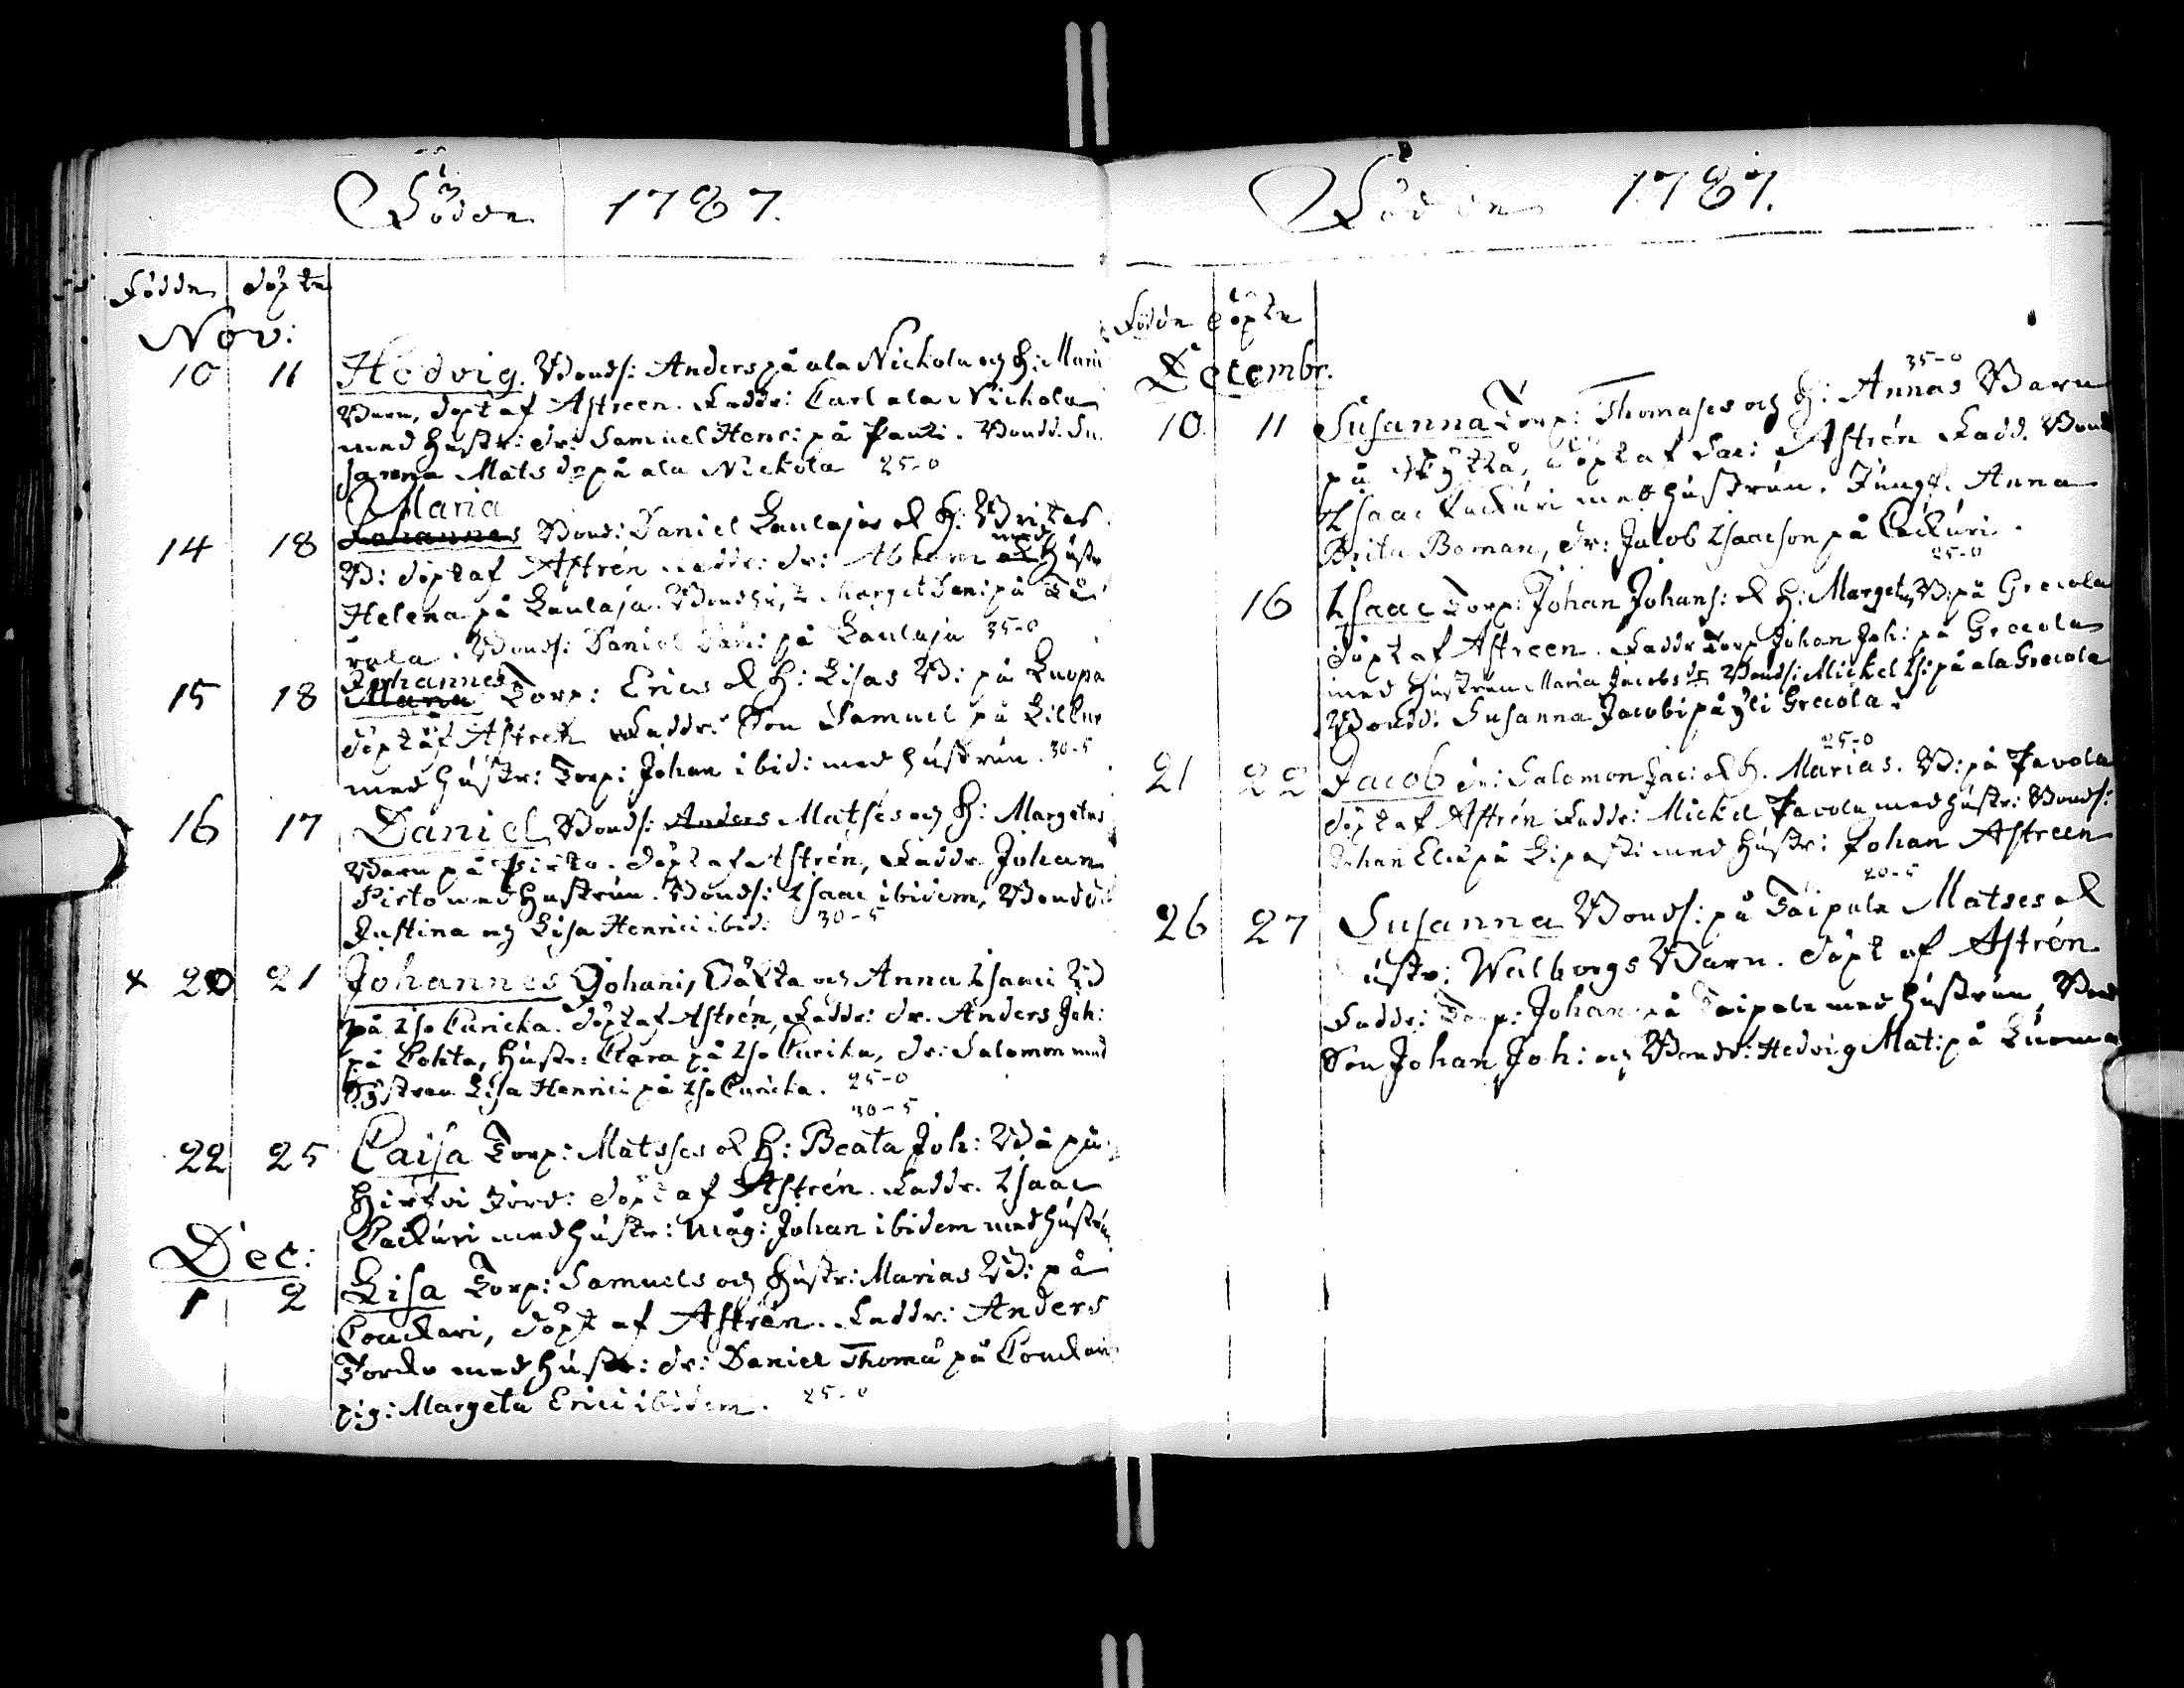 Födde 1787.
Födde döpte
Nov:
10 11 Hedvig. Bonds: Anders på ala Nickola och H: Mari
Barn, döpt af Astreen. Faddr: Carl ala Nickola
med hustr: dr: Samuel Henr: på Panti. Bondd. Su
sanna Mats dr på ala Nickola 25-0
Maria
14 18 Johannes Bond: Daniel Laulajas & H: Britas
med
B: döpt af Astrén Faddr: dr: Abham & hustr
Helena på Laulaja. Margeta Dani på
rala. Bonds: Daniel Dan: på Laulaja 35-0
Johannes
15 18 Maria Torp: Erics & H: Lisas B: på Luopa
döpt af Astren Faddr: Son Samuel på
med hustr: Torp: Johan ibid: med hustrun. 30-5
16 17 Daniel, Bonds: Anders Matses och H: Margetas
Barn på Pirto. döpt af Astrén, Faddr. Johan
Pirto med hustrun. Bonds: Isaac ibidem, Bondd:
Justina och Lisa Henrici ibid: 30-5
x 20 21 Johannes Johani, och Anna Isaaci B
på Iso Curicka. döpt af Astrén, Faddr: dr. Anders Joh:
på hustr: Clara på Iso Curicka, dr: Salomon med
Systren Lisa Henrici på Iso Curicka. 25-0
30-5
22 25 Caisa Torp: Matsses & H: Beata Joh: B: på
Hirfvi Jord: döpt af Astrén. Faddr. Isaac
Cackuri med hustr: måg: Johan ibidem med hustrun
Dec:
1 2 Lisa Torp: Samuels och hustr: Marias B: på
Couckari, döpt af Astrén. Faddr: Anders
med hustr: dr: Daniel Thomæ på Couckari
pig: Margeta Erici ibidem. 25-0
Födde 1787.
Födde döpte
Decembr.
35-0
10 11 Susanna Torp: Thomases och H: Annas Barn
på döpt af Sac: Astrén Fadd. Bond
Isaac Cackuri med hustrun. Jungf. Anna
Brita Boman, dr: Jacob Isaacson på Cackuri.
25-0
16 Isaac Torp: Johan Johans: & H: Margetas B: på Grecola
döpt af Astreen. Faddr Torp Johan Joh: på Grecola
med hustrun Maria Jacobs dr Bonds: Mickel Is: på ala Grecola
Bondd: Susanna Jacobi på yli Grecola.
25-0
21 22 Jacob dr: Salomon Jac: & H. Marias. B: på Pavola
döpt af Astrén Faddr: Mickel Pavola med hustr: Bonds:
Johan på Lipasti med hustr: Johan Astreen
20-5
26 27 Susanna Bonds: på Taipale Matses &
ustr: Walborgs Barn. döpt af Astrén
Faddr: Torp: Johan på Taipale med hustrun, Bond
Son Johan Joh: och Bondd: Hedvig Mat: på Luoma